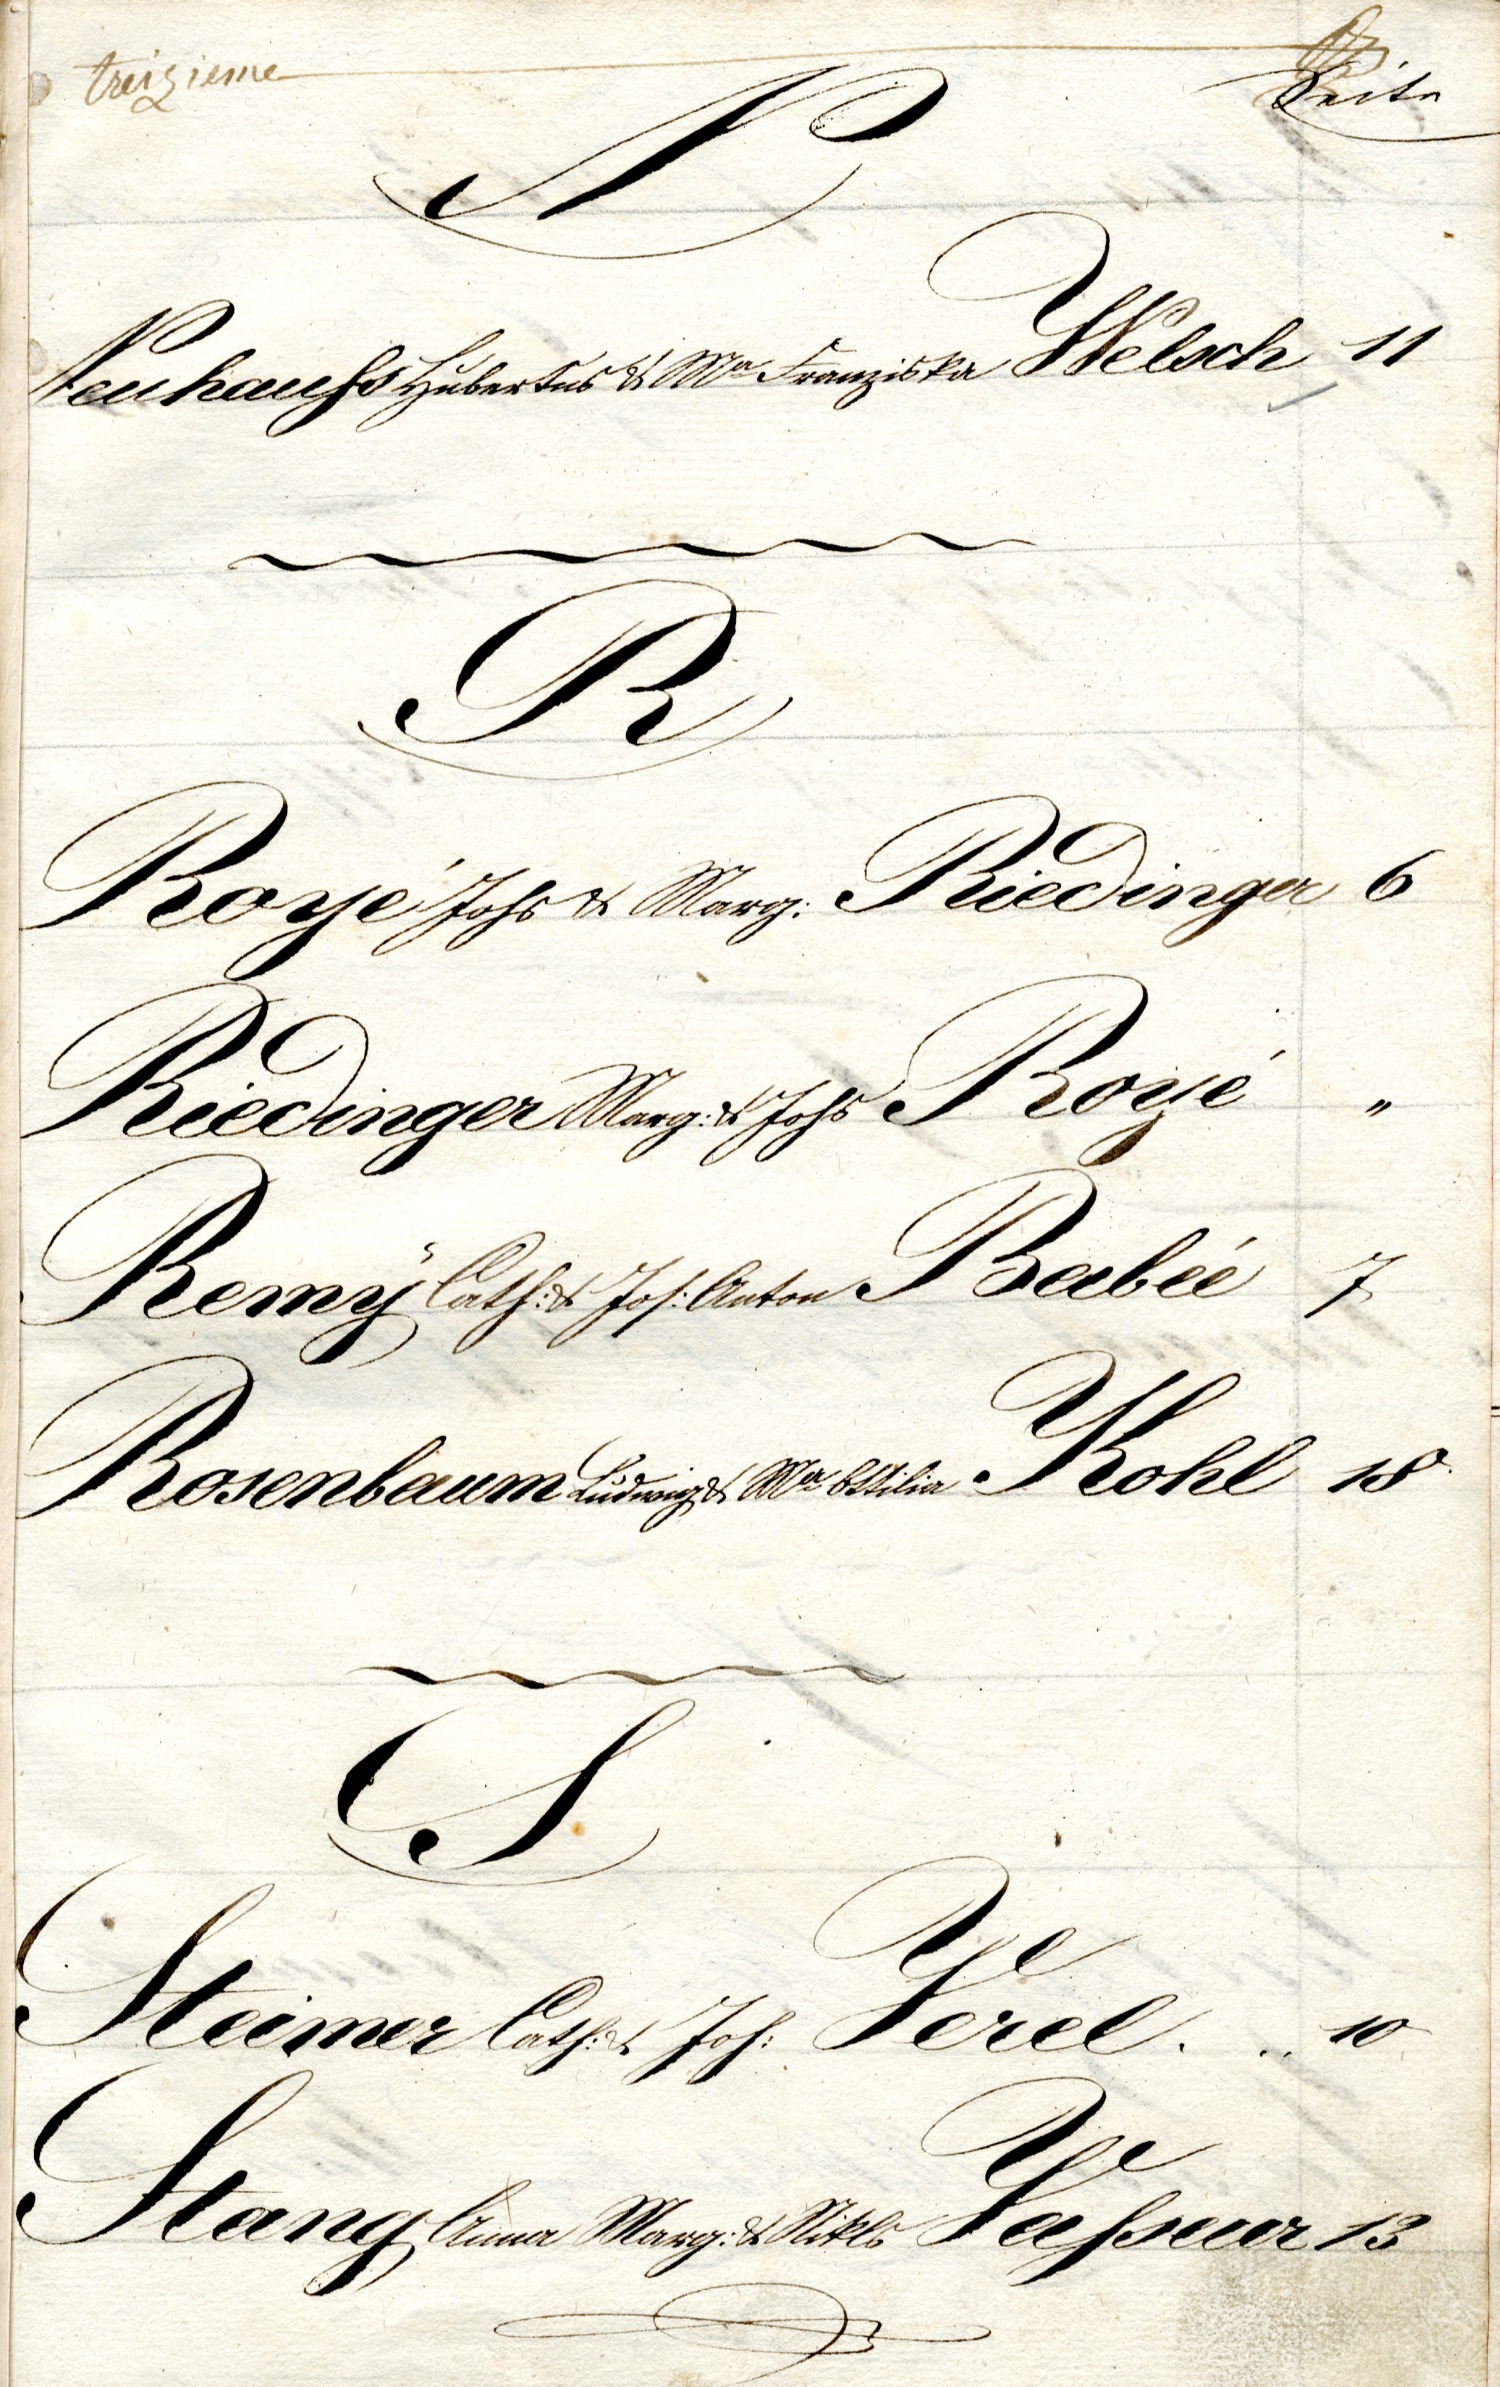 treizieme Seite
N
Neuhauſs Hubertus & Mª Franziska Welsch 11
R
Royé Johs & Marg: Riedinger 6
Riedinger Marg: & Johs Royé "
Remÿ Cath: & Jos: Anton Baubeé 7
Rosenbaum Ludwig & Mª Ottilia Kohl 18
S
Steimer Cath: & Joh: Verel . .. 10
Stang Anna Marg: & Nikls Vaſseur 13